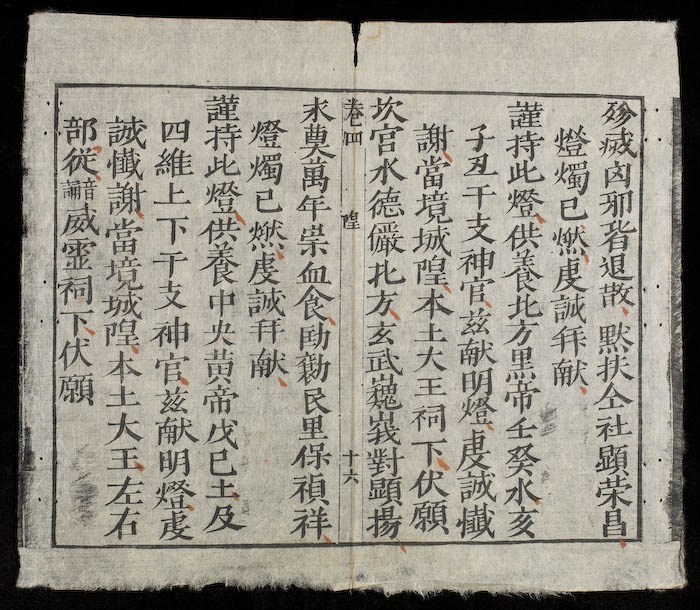 殄㓕凶邪皆退散、默扶仝社顯荣昌、
燈燭已燃虔誠拜献、
謹持此燈、供養北方黒帝壬癸水亥
子丑干支神官、兹献明燈、虔誠懺
謝、當境城隍、本土大王祠下、伏願
坎宫水德儼北方、玄武巍峩對顯揚、
卷四 隍 十六
永奠萬年崇血食、助勷民里保禎祥、
燈燭已燃、虔誠拜献、
謹持此燈、供養中央黄帝戊己土及
四維上下干支神官、兹献明燈、虔
誠懺謝、當境城隍、本土大王、左右
部従、音誦威霊祠下、伏願